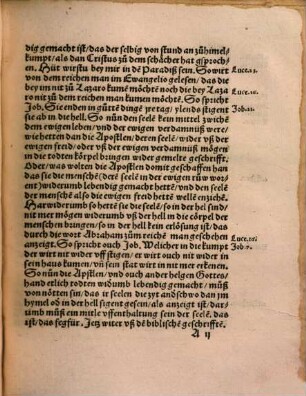 dig gemacht ist/das der selbig von stund an zů himel
kumpt/als dan Cristus zů dem schächer hat gsproch-
en. Hüt wirstu bey mir in dē Paradiß sein. So wirt
von dem reichen man im Ewangelio gelesen/das die
bey im nit zů Lazaro kumē möchtē noch die bey Laza
ro nit zů dem reichen man kumen möchtē. So spricht
Job. Sie enden in gůttē dingē ire tag/ylends stigent
sie ab in die hell. So nůn den seelē kein mittel zwischē
dem ewigen leben/und der ewigen verdamnüß were/
wie hetten dan die Apostlen/deren seelē/oder der seelē
ewigen freid/oder vß der ewigen verdamnüß mögen
in die todten körpel bringen wider gemelte geschrifft.
Oder/was wolten die Apostlen domit geschaffen han
das sie die menschē (derē seelē in der ewigen růw wor
ent) widerumb lebendig gemacht hettē/und den seelē
der menschē also die ewigen freid hettē wellē enziehē.
Harwiderumb so hettē sie der seelē/so in der hel sind/
nit mer mögen widerumb vß der hell in die cörpel der
menschen bringen/so in der hell kein erlösung ist/das
durch die wort Abraham zum reichē man geschehen
anzeigt. So spricht ouch Job, Welicher in die kumpt
der wirt nit wider vff stigen/er wirt ouch nit wider in
sein haus kumen/vñ sein stat wirt in nit mer erkenen.
So nůn die Apstlen/und ouch ander helgen Gottes/
hand etlich todten widumb lebendig gemacht/můß
von nötten sin/das ir seelen die zyt and schwo dan im
hymel od in der hell sigent gesein/als anzeigt ist/dar-
umb můß ein mitle vffenthaltung sein der seelē. das
ist/das fegfür. Jetz witer vß dē biblischē geschrifftē.
A ij
Luce.23.
Luce.16.
Job.21.
Luce.16.
Job.7.